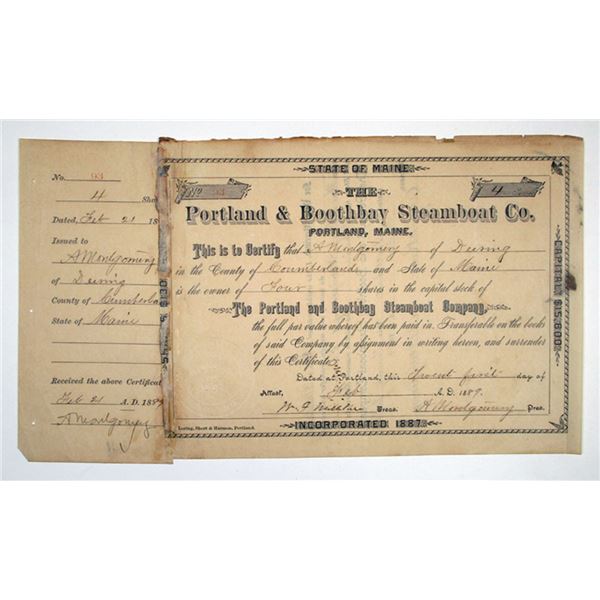 No. 93
4 Sha
Dated, Feb 21 18
Issued to
A Montgomery
of Deering
County of Cumberla
State of Maine
Received the above Certificat
Feb 21 A.D. 188
A Montgomery
STATE OF MAINE
No 93
4
THE
Portland & Boothbay Steamboat Co.
PORTLAND, MAINE.
This is to Certify that A Montgomery of Deering
in the County of Cumberland and State of Maine
is the owner of Four shares in the capital stock of
The Portland and Boothbay Steamboat Company,
the full par value whereof has been paid in. Transferable on the books
of said Company by assignment in writing hereon, and surrender
of this Certificate.
Dated at Portland, this Twenty first day of
Attest, Feb A.D. 1889.
Treas. A Montgomery Pres.
Loring, Short & Harmon, Portland.
INCORPORATED 1887
CAPITAL $15,800